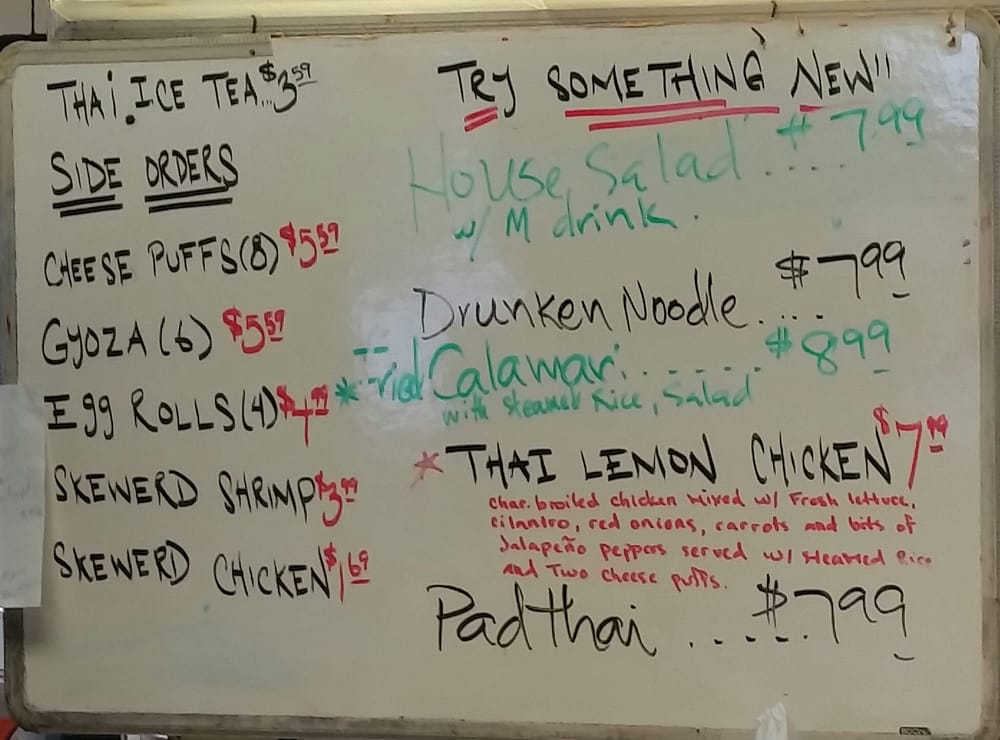 THAI ICE TEA...$3.59
SIDE ORDERS
CHEESE PUFFS(8) $5.59
GYOZA (6) $5.59
Egg ROLLS(4) $4.99
SKEWERD SHRIMP $3.99
SKEWERD CHICKEN $1.69
TRY SOMETHING NEW!!
House Salad .... $7.99
w/ M drink.
Drunken Noodle..... $7.99
*Fried Calamari....... $8.99
with steamed Rice, Salad
* THAI LEMON CHICKEN $7.99
char. broiled chicken mixed w/ Fresh lettuce,
cilantro, red onions, carrots and bits of
Jalapeño peppers served w/ steamed Rice
and Two cheese puffs.
Pad thai ..... $7.99